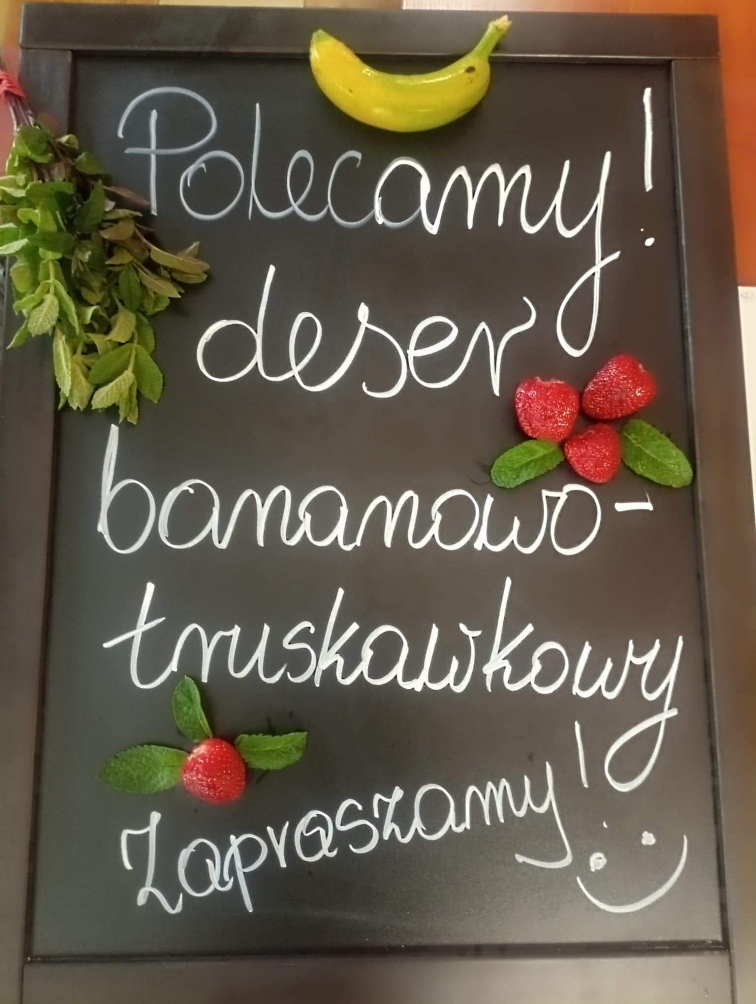 Polecamy!
deser
bananowo-
truskawkowy
Zapraszamy!